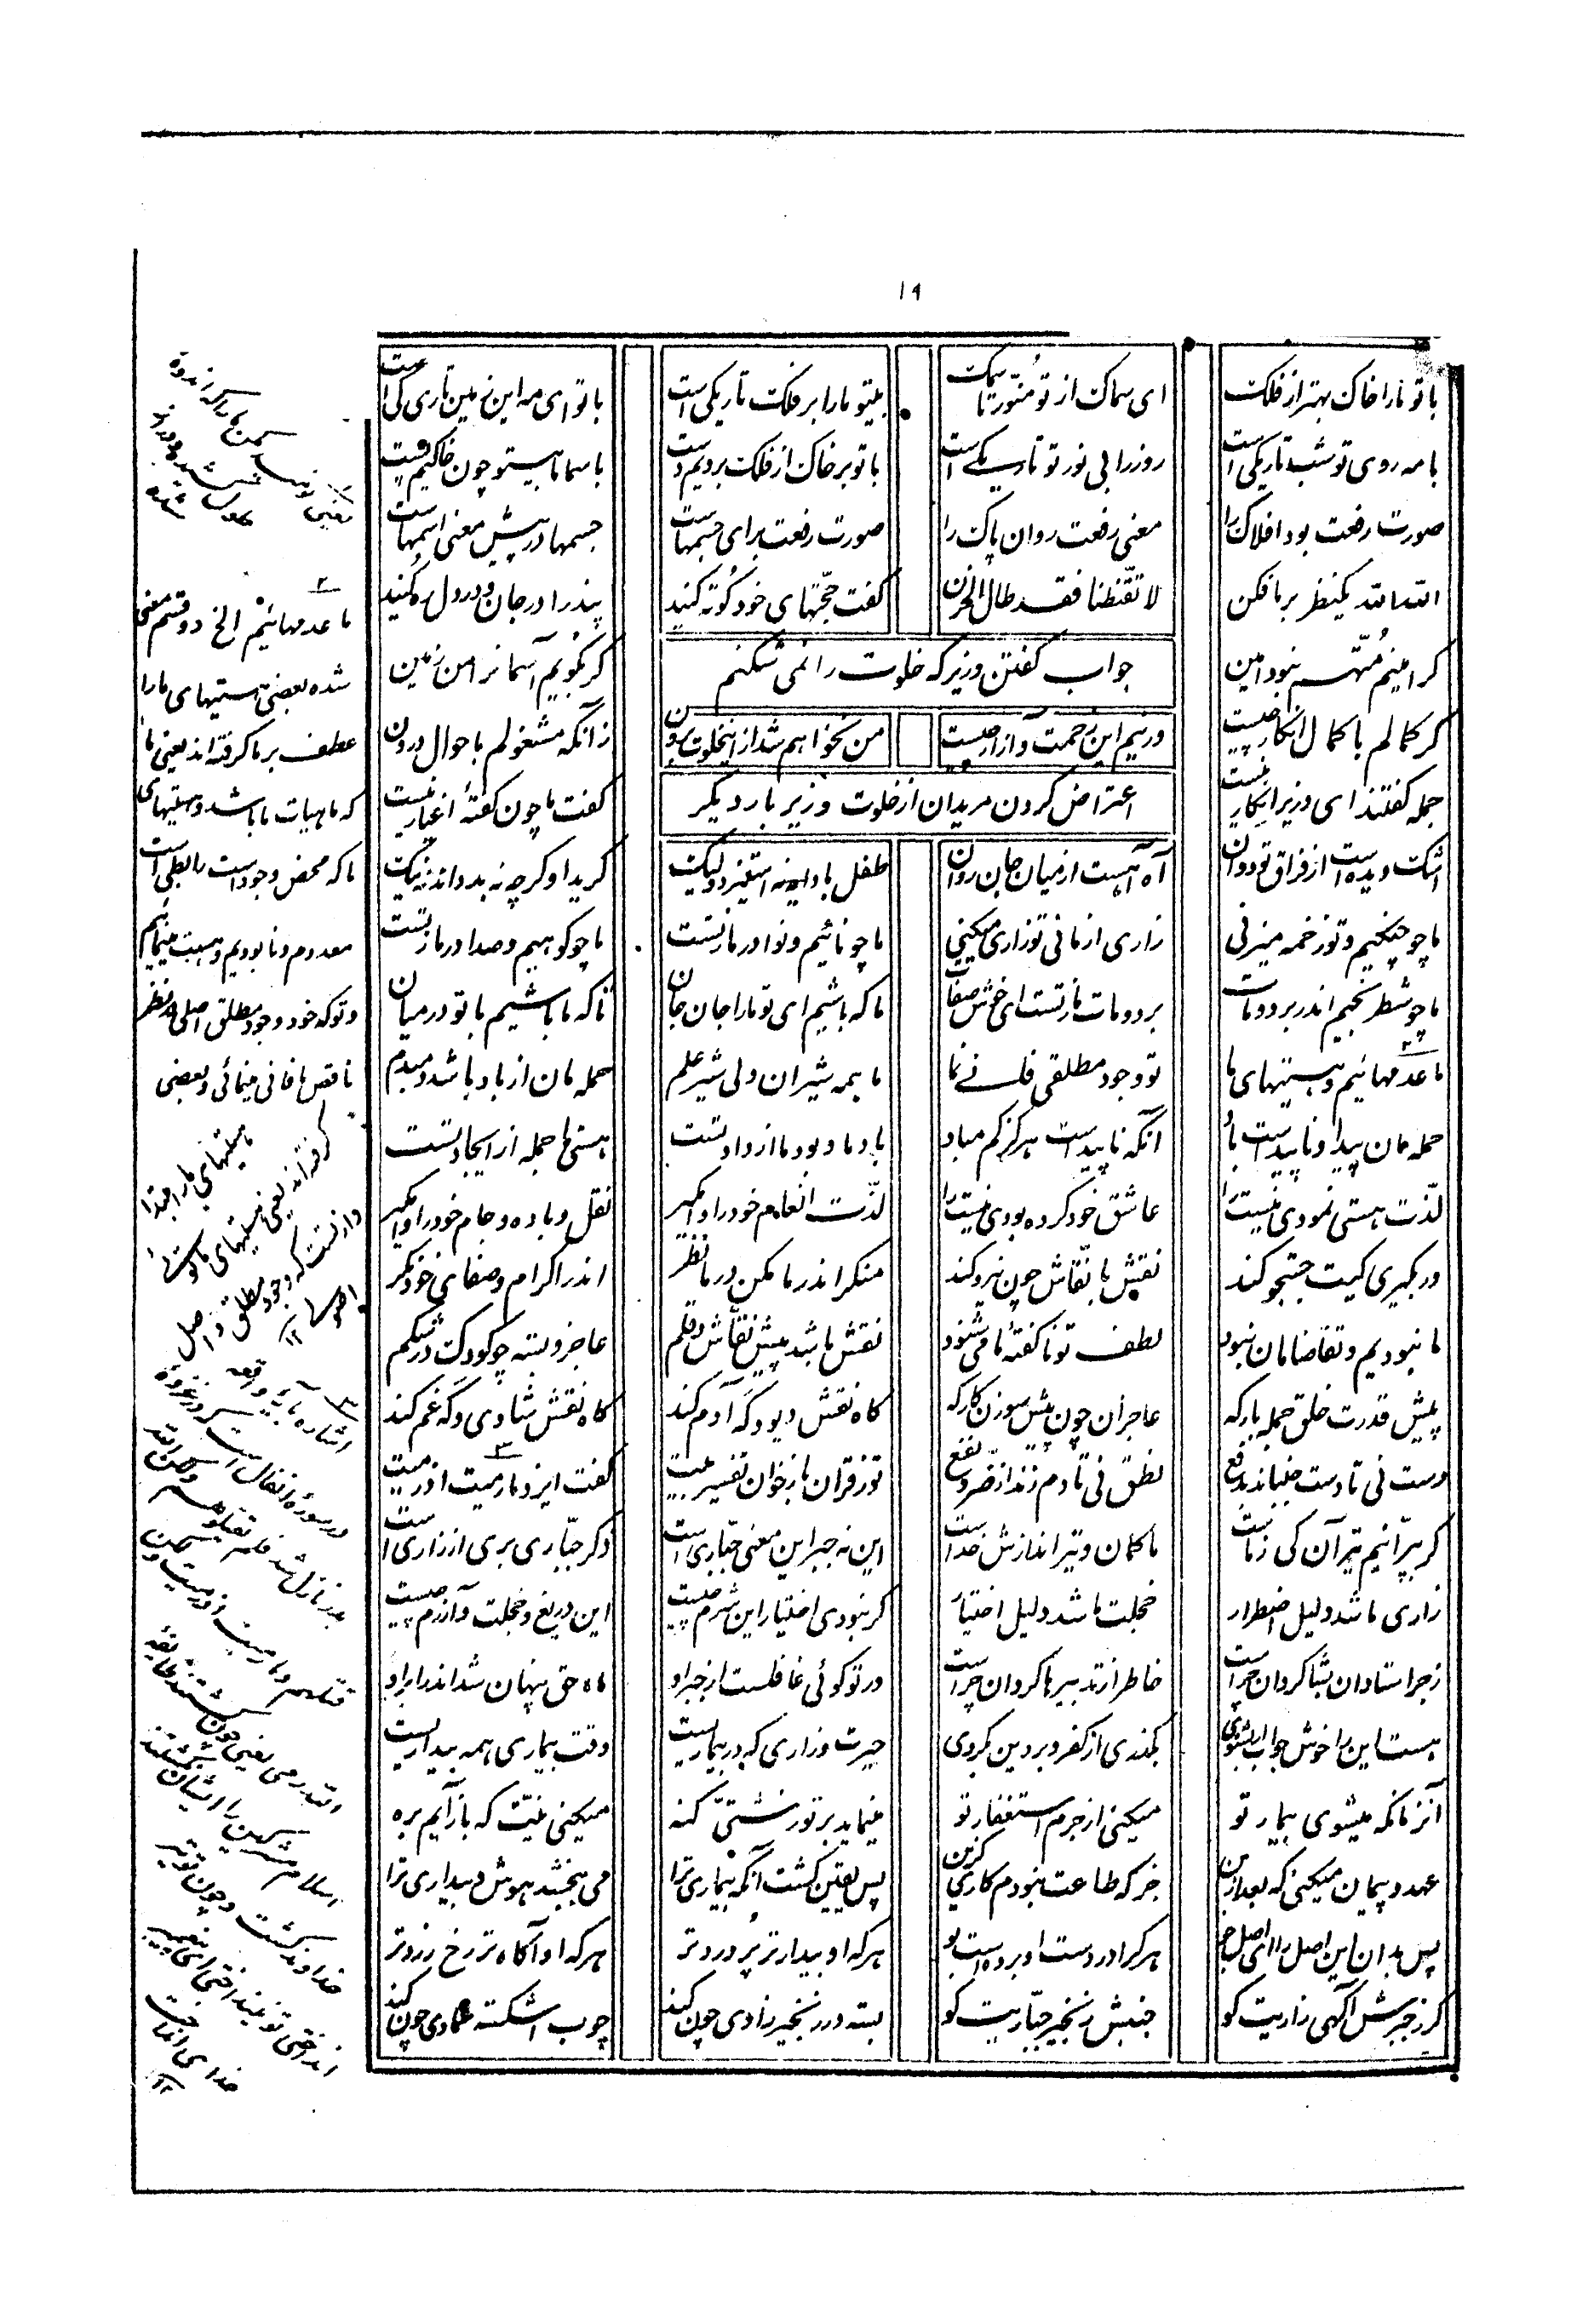 ۱۹
با تو ما را خاک بهتر از فلک ای سماک از تو منور تا سمک بیتو ما را بر فلک تاریکی است با تو ای مه این زمین تاری کی است
با مه روی تو شب تاریکی است روز را بی نور تو تاریکی است با تو بر خاک از فلک بردیم دست باسما ما بیتو چون خاکیم پست
صورت رفعت بود افلاک را معنی رفعت روان پاک را صورت رفعت برای جسمهاست جسمها در پیش معنی اسمهاست
الله الله یکنظر بر ما فکن لا تقنطنا فقد طال الحزن گفت حجتهای خود کوته کنید پند را در جان و در دل ره کنید
گر امینم متهم نبود امین گر بگویم آسمانرا من زمین
جواب گفتن وزیر که خلوت را نمی شکنم
گر کمالم با کمال انکار چیست ور نیم این زحمت و آزار چیست من نخواهم شد ازین خلوت برون زانکه مشغولم باحوال درون
اعتراض کردن مریدان از خلوت وزیر بار دیگر
جمله گفتند ای وزیر انکار نیست گفت ما چون گفتهٔ اغیار نیست
اشک دیده است از فراق تو دوان آه آهست از میان جان روان طفل با دایه نه استیزد ولیک گرید او گرچه نه بد داند نه نیک
ما چو چنگیم و تو زخمه میزنی زاری از ما نی تو زاری میکنی ما چو نائیم و نوا در ما ز تست ما چو کوهیم و صدا در ما ز تست
ما چو شطرنجیم اندر برد و مات برد و مات ما ز تست ای خوش صفات ما که باشیم ای تو ما را جان جان تا که ما باشیم با تو در میان
ما عدمهائیم و هستیهای ما تو وجود مطلقی فانی نما ما همه شیران ولی شیر علم حمله مان از باد باشد دمبدم
حمله مان پیدا و ناپیداست باد آنکه ناپیداست هرگز کم مباد باد ما و بود ما از داد تست هستی ما جمله از ایجاد تست
لذت هستی نمودی نیست را عاشق خود کرده بودی نیست را لذت انعام خود را وامگیر نقل و باده و جام خود را وامگیر
ور بگیری کیت جستجو کند نقش با نقاش چون نیرو کند منگر اندر ما مکن در ما نظر اندر اکرام و صفای خود نگر
ما نبودیم و تقاضامان نبود لطف تو ناگفتهٔ ما می شنود نقش باشد پیش نقاش و قلم عاجز و بسته چو کودک در شکم
پیش قدرت خلق جمله بارگه عاجزان چون پیش سوزن کارگه گاه نقش دیو و گه آدم کند گاه نقش شادی و گه غم کند
دست نی تا دست جنباند بدفع نطق نی تا دم زند از ضر و نفع تو ز قرآن بازخوان تفسیر بیت گفت ایزد ما رمیت اذ رمیت
گر بپرانیم تیر آن کی ز ماست ما کمان و تیراندازش خداست این نه جبر این معنی جباری است ذکر جباری برای زاری است
زاری ما شد دلیل اضطرار خجلت ما شد دلیل اختیار گر نبودی اختیار این شرم چیست این دریغ و خجلت و آزرم چیست
زجر استادان بشاگردان چراست خاطر از تدبیرها گردان چراست ور تو گوئی غافلست از جبر او ماه حق پنهان شد اندر ابر او
هست این را خوش جواب ار بشنوی بگذری از کفر و بر دین بگروی حیرت و زاری که در بیماریست وقت بیماری همه بیداریست
آنزمانکه میشوی بیمار تو میکنی از جرم استغفار تو مینماید بر تو زشتی گنه میکنی نیت که باز آیم بره
عهد و پیمان میکنی که بعد ازین جز که طاعت نبودم کاری گزین پس یقین گشت آنکه بیماری ترا می ببخشد هوش و بیداری ترا
پس بدان این اصل را ای اصل جو هر کرا دردست او برده است بو هر که او بیدارتر پر دردتر هر که او آگاه تر رخ زردتر
گر ز جبرش آگهی زاریت کو جنبش زنجیر جباریت کو بسته در زنجیر زادی چون کند چوب اشکسته عمادی چون کند
۲
ما عدمهائیم الخ دو قسم معنی
شده بعضی هستیهای ما را
عطف بر ما گرفته اند یعنی ما
که ماهیات ما باشد و هستیهای
ما که محض وجود است رابطی است
معدوم و نابودیم و هست مینمائیم
و تو که خود وجود مطلق اصلی در نظر
ناقص ما فانی مینمائی و بعضی
هستیهای ما را مبتدا
گرفته اند یعنی هستیهای ما
۳
اشاره بآیه واقعه
در سوره انفال است که در غزوه
بدر نازل شد فلم تقتلوهم ولکن الله
قتلهم و ما رمیت اذ رمیت ولکن
الله رمی یعنی چون